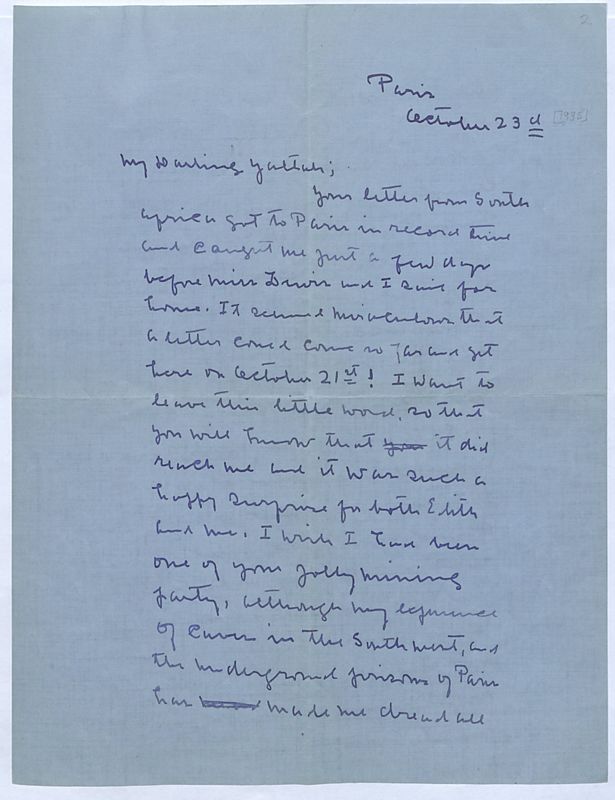 2
Paris
October 23d [1935]
My Darling Yaltah;
Your letter from South
Africa got to Paris in record time
and caught me just a few days
before Miss Lewis and I sail for
home. It seemed miraculous that
a letter could come so far and get
here on October 21st! I want to
leave this little word, so that
you will know that you it did
reach me and it was such a
happy surprise for both Edith
and me. I wish I had been
one of your jolly mining
party, although my experience
of caves in the Southwest, and
the underground prisons of Paris
has made me dread all